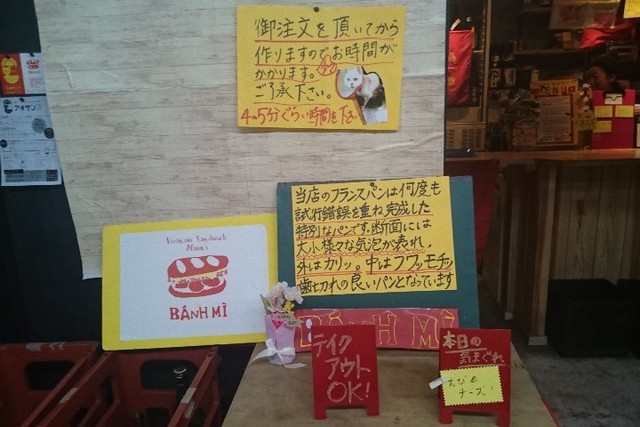 御注文を頂いてから
作りますのでお時間が
かかります。
ご了承下さい。
4~5分ぐらい時間も下さい
当店のフランスパンは何度も
試行錯誤を重ね完成した
特別なパンです。断面には
大小様々な気泡が表れ、
外はカリッ。中はフワッモチッ
歯切れの良いパンとなっています
Vietnamese Sandwich
BÁNH MÌ
BÁNH MÌ
テイク
アウト
OK!
本日の
気まぐれ
えび&
チーズ!